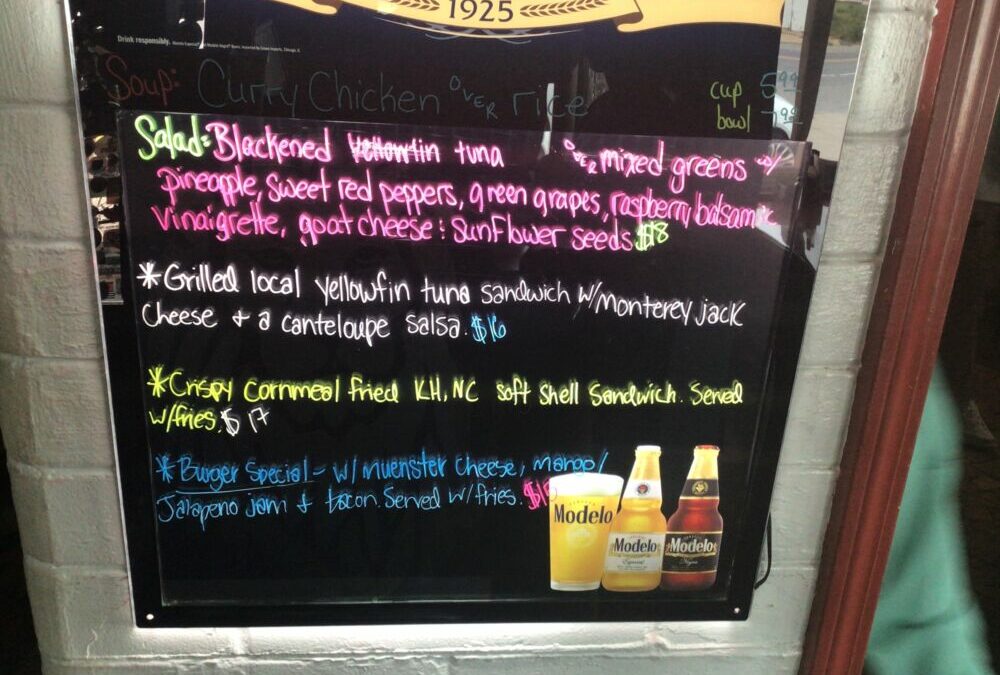 1925
Drink responsibly.
Soup: Curry Chicken OVER rice cup 5.99
bowl 7.99
Salad: Blackened yellowfin tuna OVER mixed greens w/
pineapple, sweet red peppers, green grapes, raspberry balsamic
vinaigrette, goat cheese & sunflower seeds $18
*Grilled local yellowfin tuna sandwich w/monterey jack
cheese + a canteloupe salsa. $16
*Crispy cornmeal fried KH, NC soft shell Sandwich. Served
w/fries. $17
*Burger Special - w/ muenster cheese, mango/
Jalapeno jam + bacon. Served w/fries.
Modelo
Modelo
Especial
Modelo
Negra